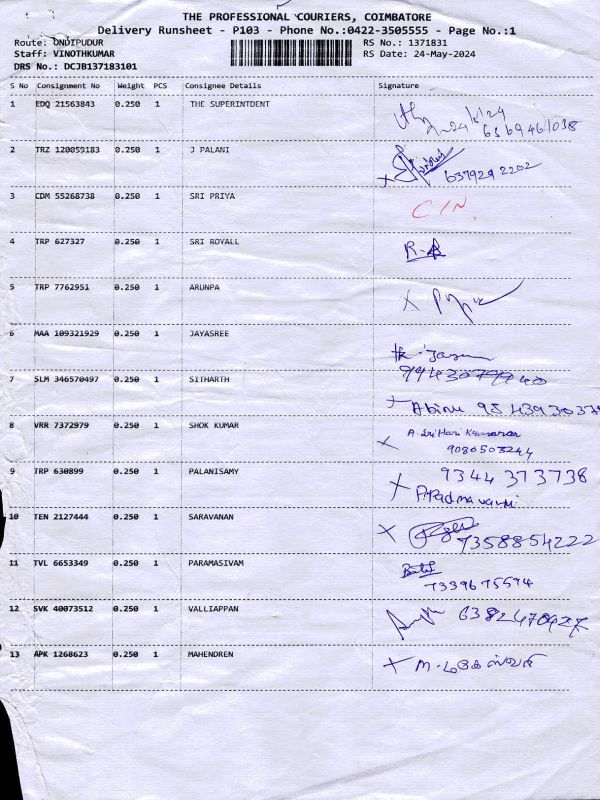 THE PROFESSIONAL COURIERS, COIMBATORE
Delivery Runsheet - P103 - Phone No.:0422-3505555 - Page No.:1
Route: ONDIPUDUR RS No.: 1371831
Staff: VINOTHKUMAR RS Date: 24-May-2024
DRS No.: DCJB137183101
S No Consignment No Weight PCS Consignee Details Signature
1 EDQ 21563843 0.250 1 THE SUPERINTDENT
24/5/24
6369461038
2 TRZ 120059183 0.250 1 J PALANI
6379292202
3 CDM 55268738 0.250 1 SRI PRIYA C/N
4 TRP 627327 0.250 1 SRI ROYALL
5 TRP 7762951 0.250 1 ARUNPA
6 MAA 109321929 0.250 1 JAYASREE
7 SLM 346570497 0.250 1 SITHARTH
8 VRR 7372979 0.250 1 SHOK KUMAR A. Sri Hari Kumaran
9080503244
9 TRP 630899 0.250 1 PALANISAMY 9344 373738
10 TEN 2127444 0.250 1 SARAVANAN
7358854222
11 TVL 6653349 0.250 1 PARAMASIVAM
7339675594
12 SVK 40073512 0.250 1 VALLIAPPAN
13 APK 1268623 0.250 1 MAHENDREN